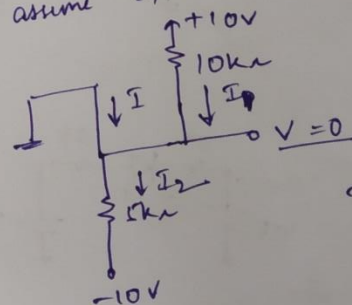 assume
+10V
10kΩ
I
I
V = 0
I2
5kΩ
-10V